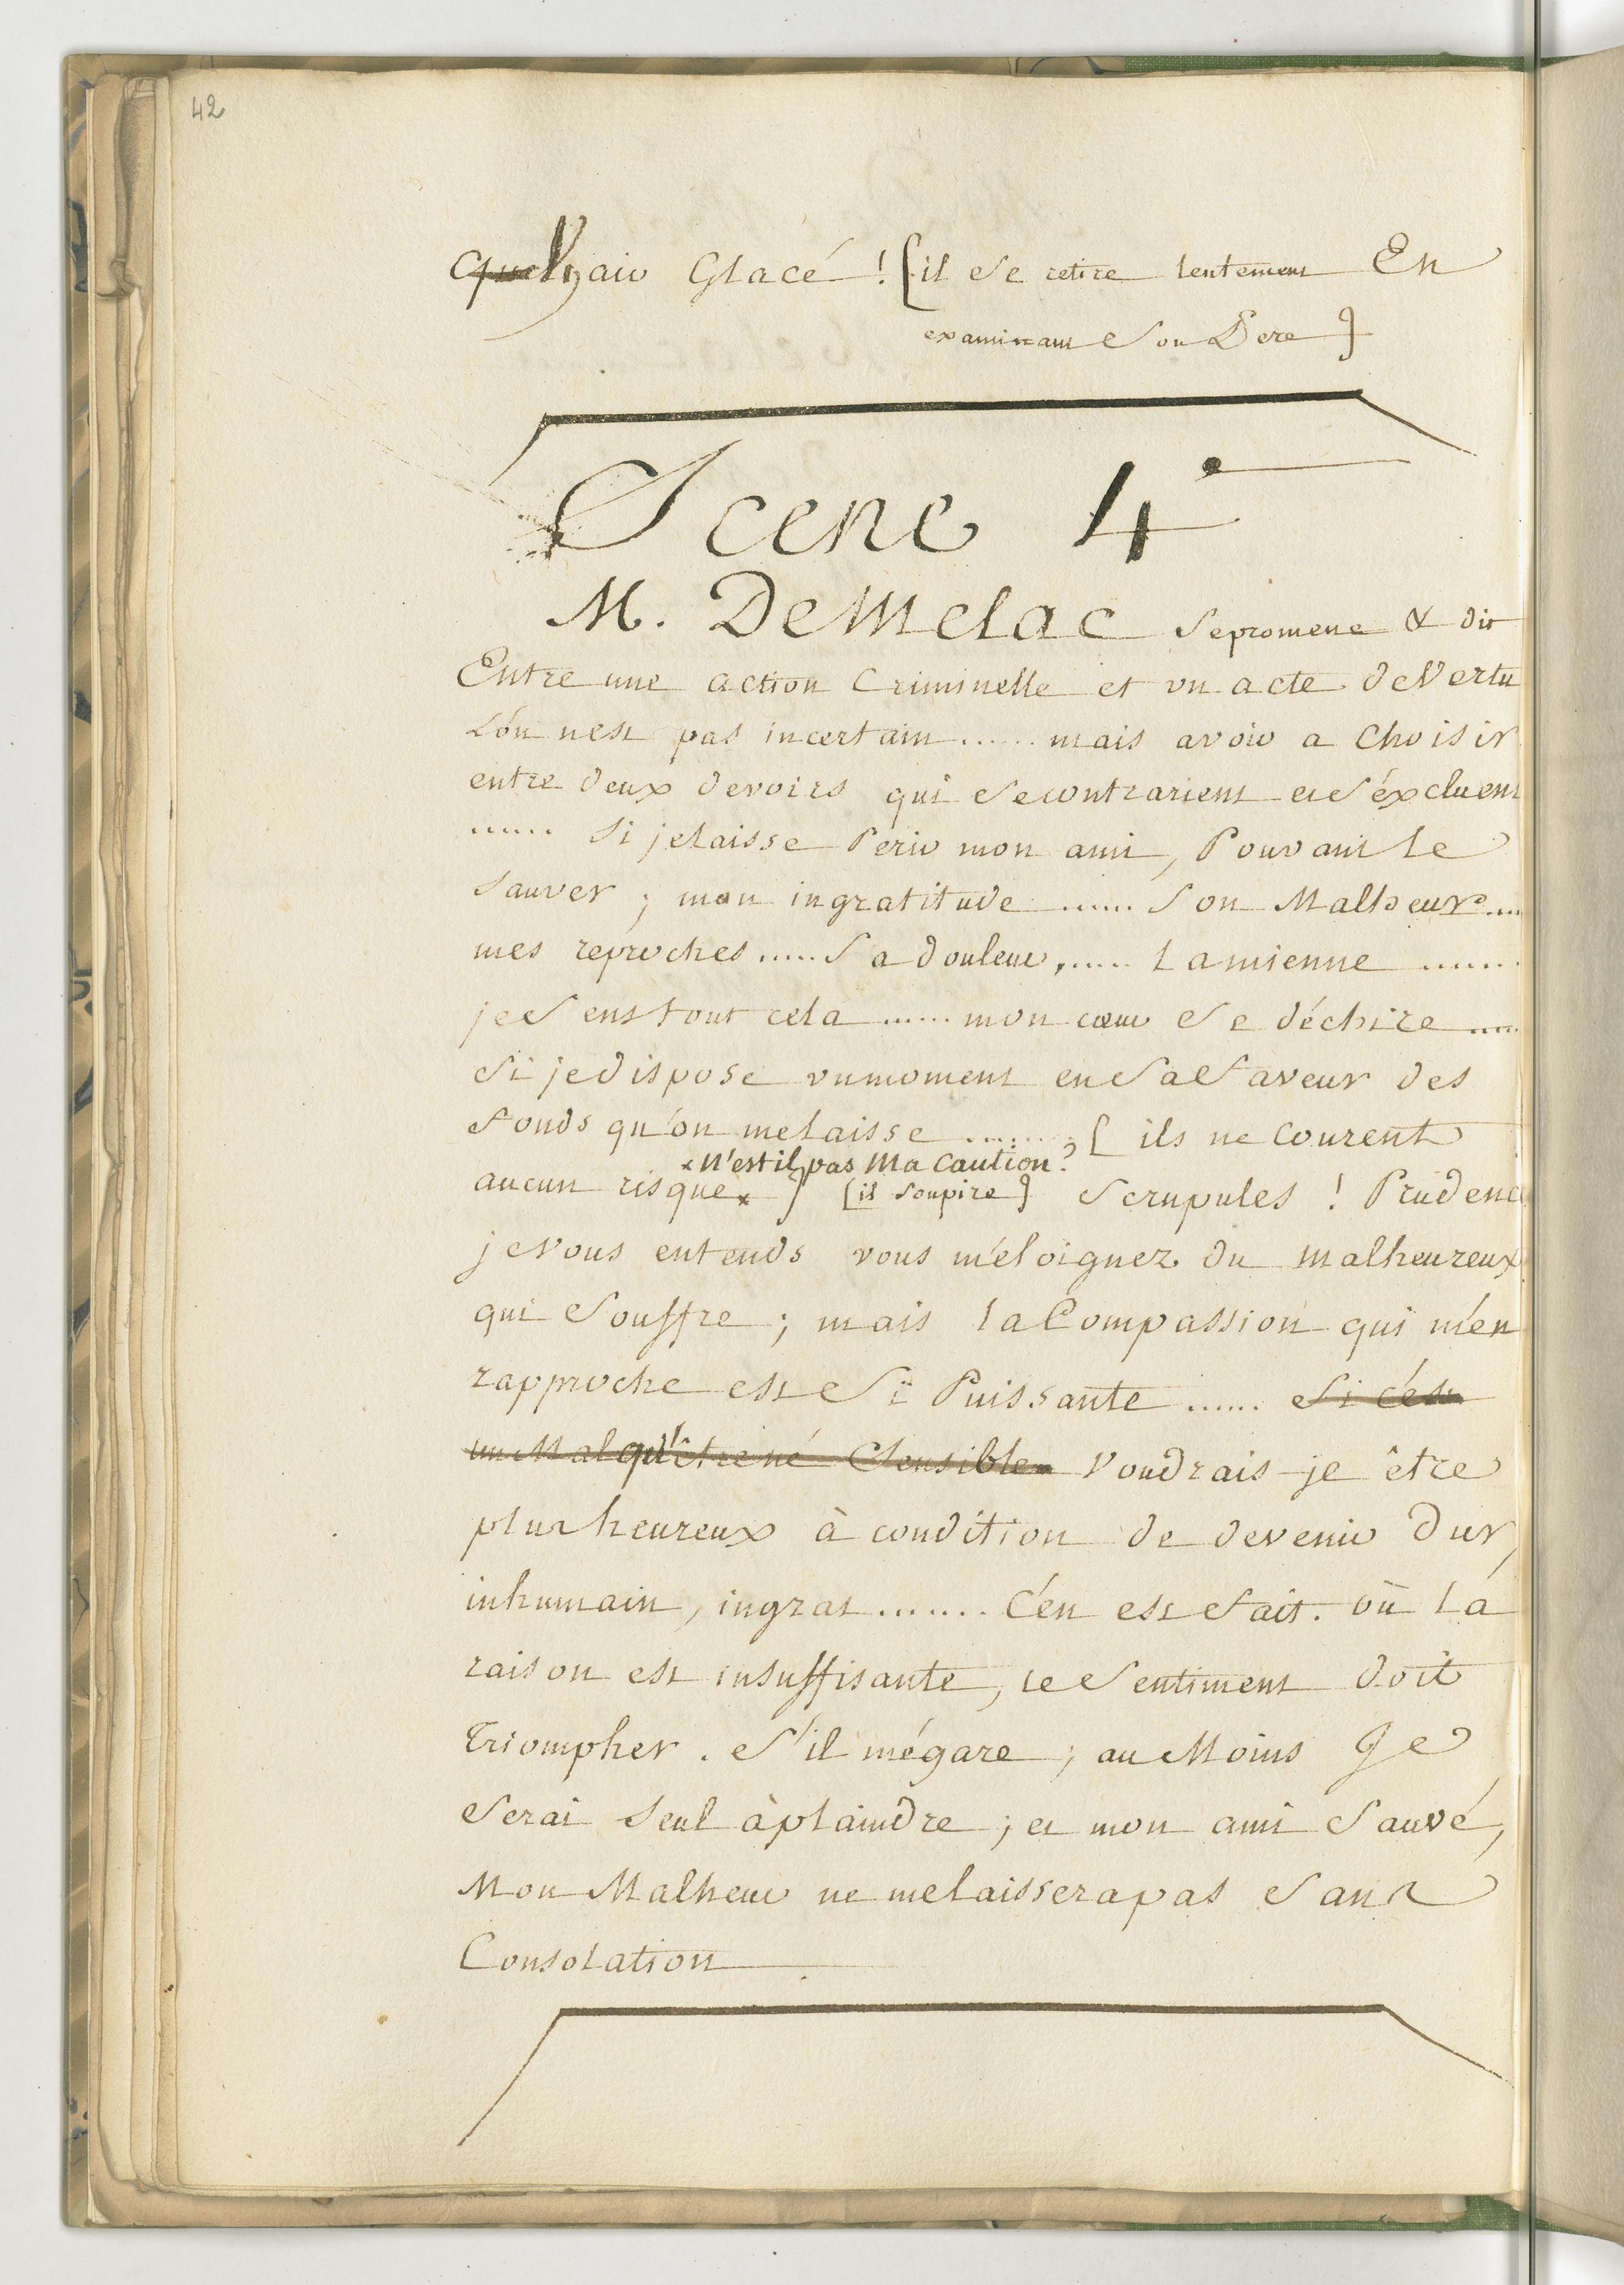 42
Quel air Glacé ! [il Se retire lentement En
examinant Son Pere]
Scene 4e
M. DeMelac Se promene & dit
Entre une action Criminelle et un acte de Vertu
L'on n'est pas incertain ...... mais avoir a Choisir
entre deux devoirs qui Se contrarient et S'éxcluent
...... Si je laisse Perir mon ami, Pouvant le
Sauver ; mon ingratitude ...... Son Malheur ....
mes reproches ..... Sa douleur, ..... La mienne ......
je Sens tout cela ...... mon cœur Se déchire ....
Si je dispose un moment en Sa faveur des
fonds qu'on me laisse ........ [ ils ne Courent
×N'est il pas Ma Caution ?
aucun risque× ] [il Soupire] Scrupules ! Prudence
je Vous entends vous m'eloignez du malheureux
qui Souffre ; mais la Compassion qui m'en
rapproche est Si Puissante ...... Si c'est
un Mal qu'être né Sensible Voudrais-je être
plus heureux à condition de devenir Dur,
inhumain, ingrat ....... C'en est fait. où la
raison est insuffisante, le Sentiment doit
Triompher. S'il m'égare ; au Moins Je
Serai Seul à plaindre ; et mon ami Sauvé,
Mon Malheur ne me laissera pas Sans
Consolation